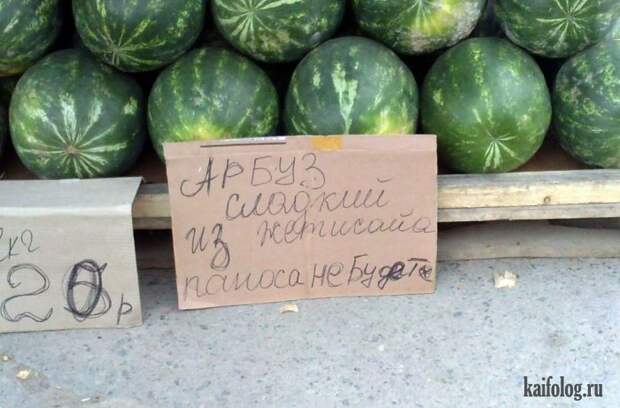 АРБУЗ
сладкий
из жетисайа
паноса не Будете
кг
20 р
kaifolog.ru